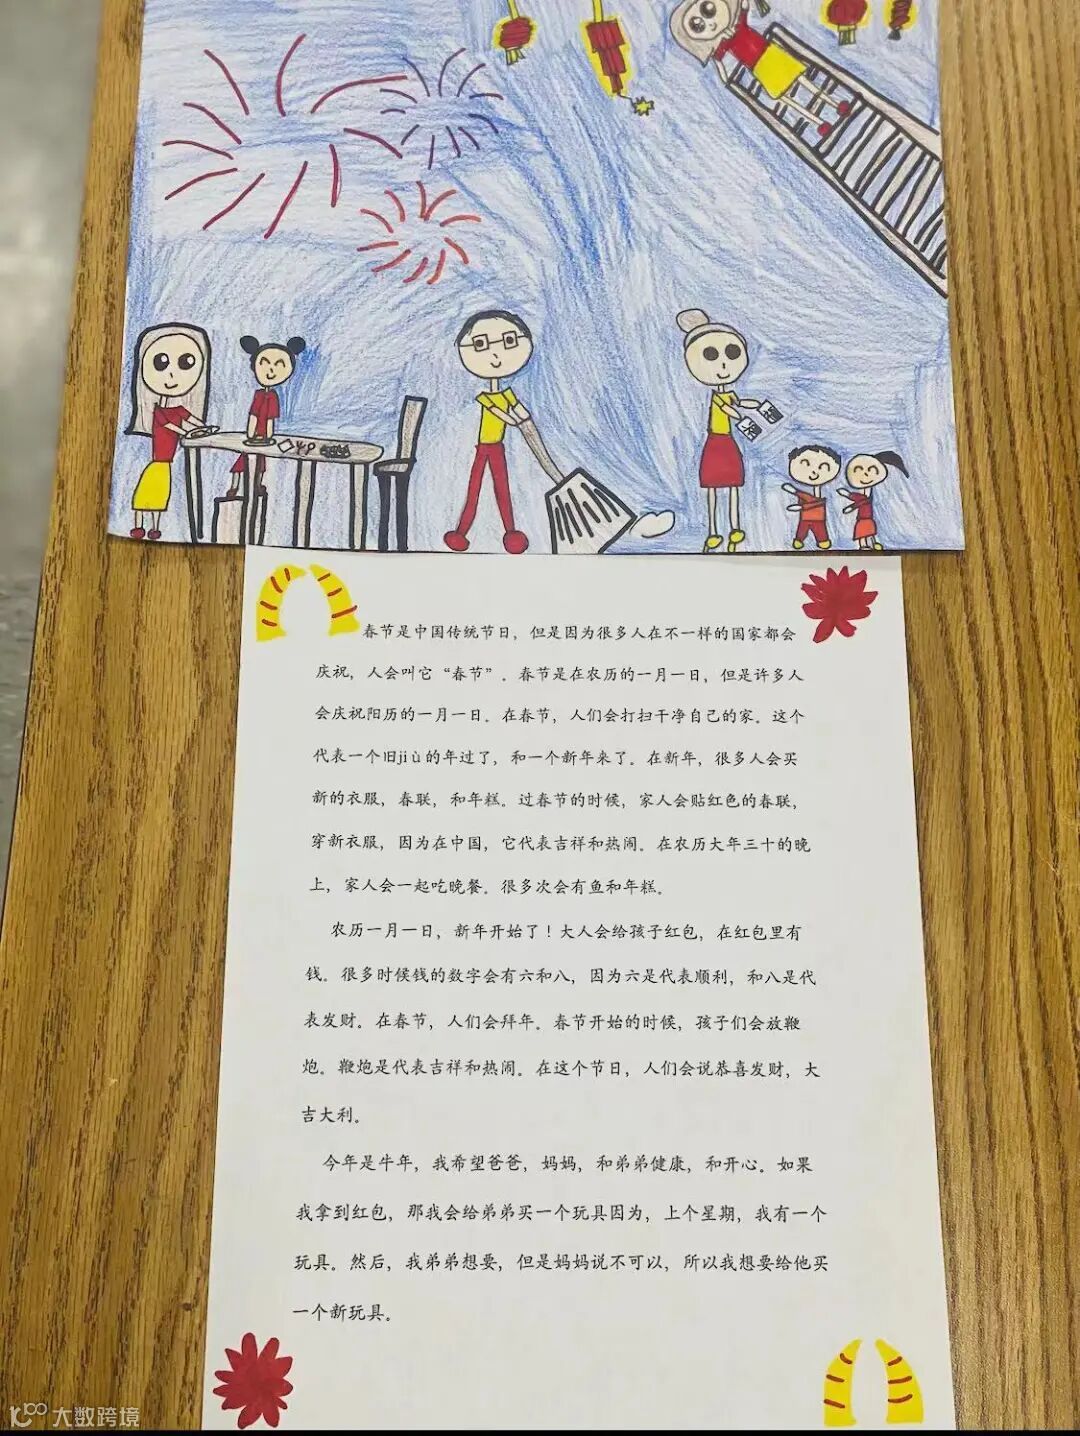 春节是中国传统节日，但是因为很多人在不一样的国家都会
庆祝，人会叫它“春节”．春节是在农历的一月一日，但是许多人
会庆祝阳历的一月一日。在春节，人们会打扫干净自己的家。这个
代表一个旧jiù的年过了，和一个新年来了。在新年，很多人会买
新的衣服，春联，和年糕。过春节的时候，家人会贴红色的春联，
穿新衣服，因为在中国，它代表吉祥和热闹。在农历大年三十的晚
上，家人会一起吃晚餐。很多次会有鱼和年糕。
农历一月一日，新年开始了！大人会给孩子红包，在红包里有
钱。很多时候钱的数字会有六和八，因为六是代表顺利，和八是代
表发财。在春节，人们会拜年。春节开始的时候，孩子们会放鞭
炮。鞭炮是代表吉祥和热闹。在这个节日，人们会说恭喜发财，大
吉大利。
今年是牛年，我希望爸爸，妈妈，和弟弟健康，和开心。如果
我拿到红包，那我会给弟弟买一个玩具因为，上个星期，我有一个
玩具。然后，我弟弟想要，但是妈妈说不可以，所以我想要给他买
一个新玩具。
大数跨境